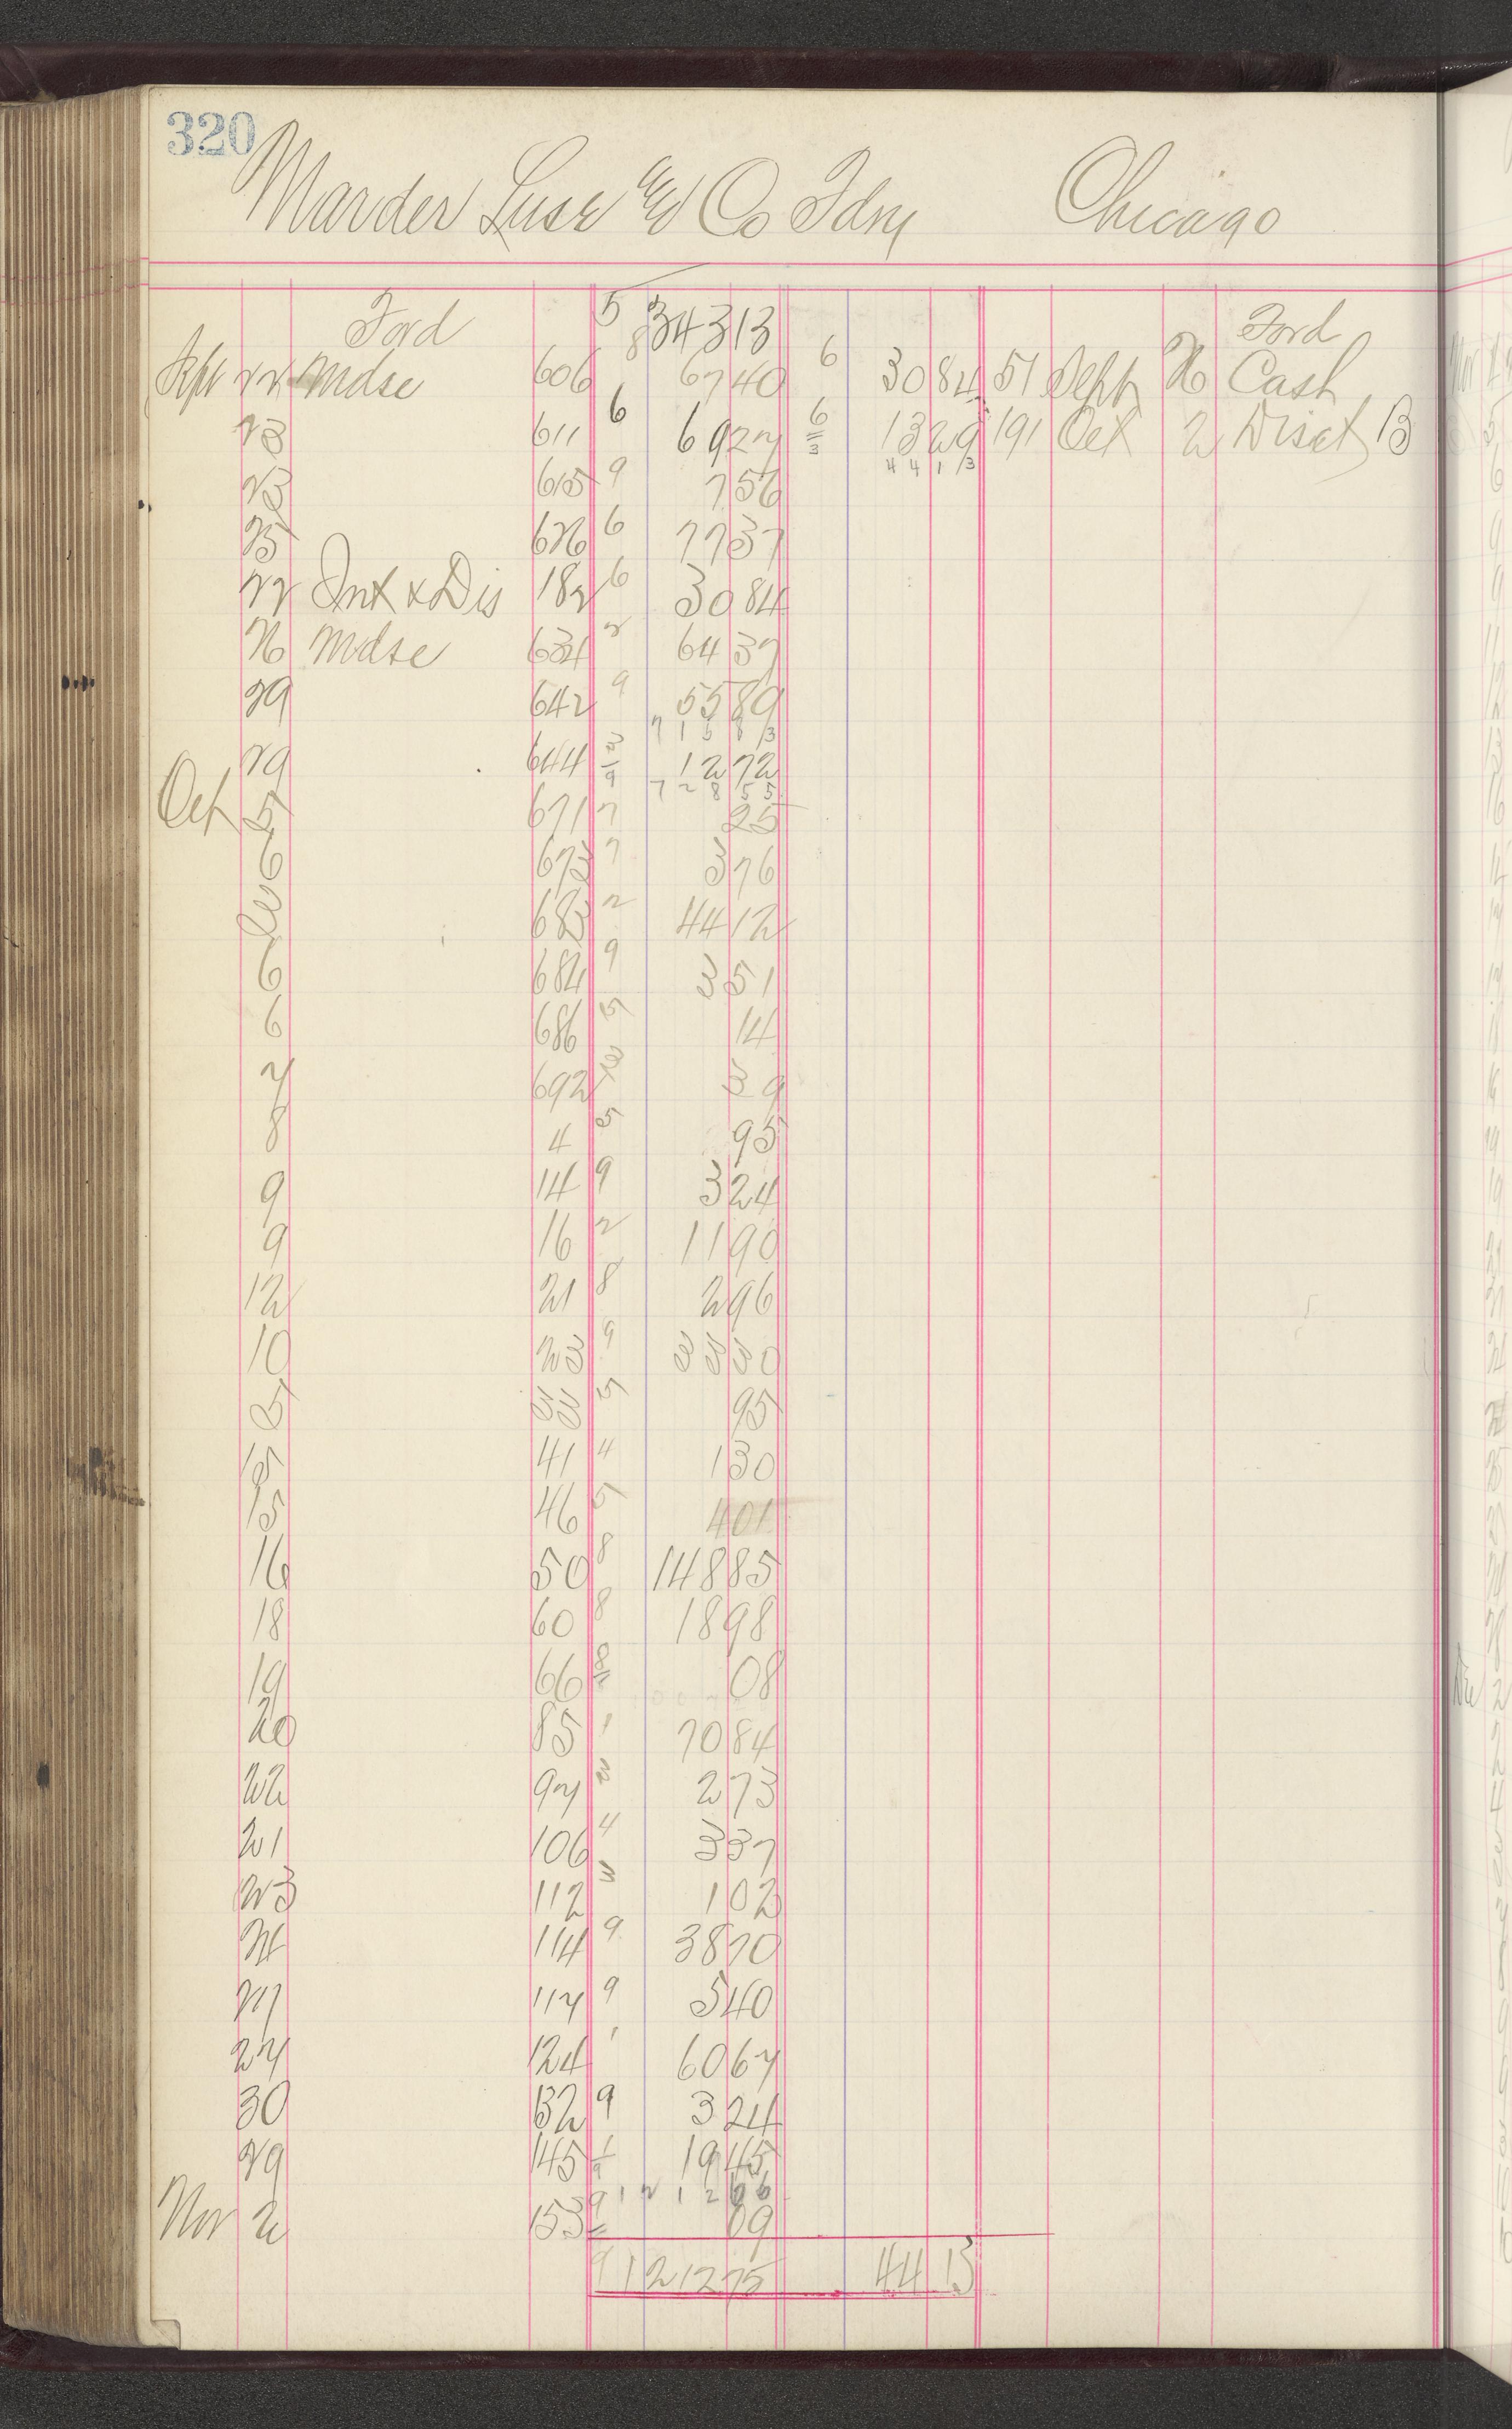 320
Marder Luse & Co Fdry Chicago
Ford 5 8 34313 Ford
Sept 22 Mdse 606 6740 6 3084 51 Sept 26 Cash
23 611 6 6927 6 1329 191 Oct 2 Disct B
3 4413
23 615 9 756
25 626 6 7737
22 Int & Dis 182 6 3084
26 Mdse 634 2 6437
29 642 9 5589
71583
29 644 3 1272
9 72855
Oct 5 671 7 25
6 673 7 376
683 2 4412
6 684 9 351
6 686 5 14
7 692 3 39
8 4 5 95
9 14 9 324
9 16 2 1190
12 21 8 296
10 23 9 3330
33 5 95
15 41 4 130
15 46 5 401
16 50 8 14885
18 60 8 1898
19 66 8 08
20 85 1 7084
22 97 3 273
21 106 4 337
23 112 3 102
24 114 9 3870
117 9 540
27 124 1 6067
30 132 9 324
29 145 1 1945
9 9 121266
Nov 2 153 09
9 121275 4413